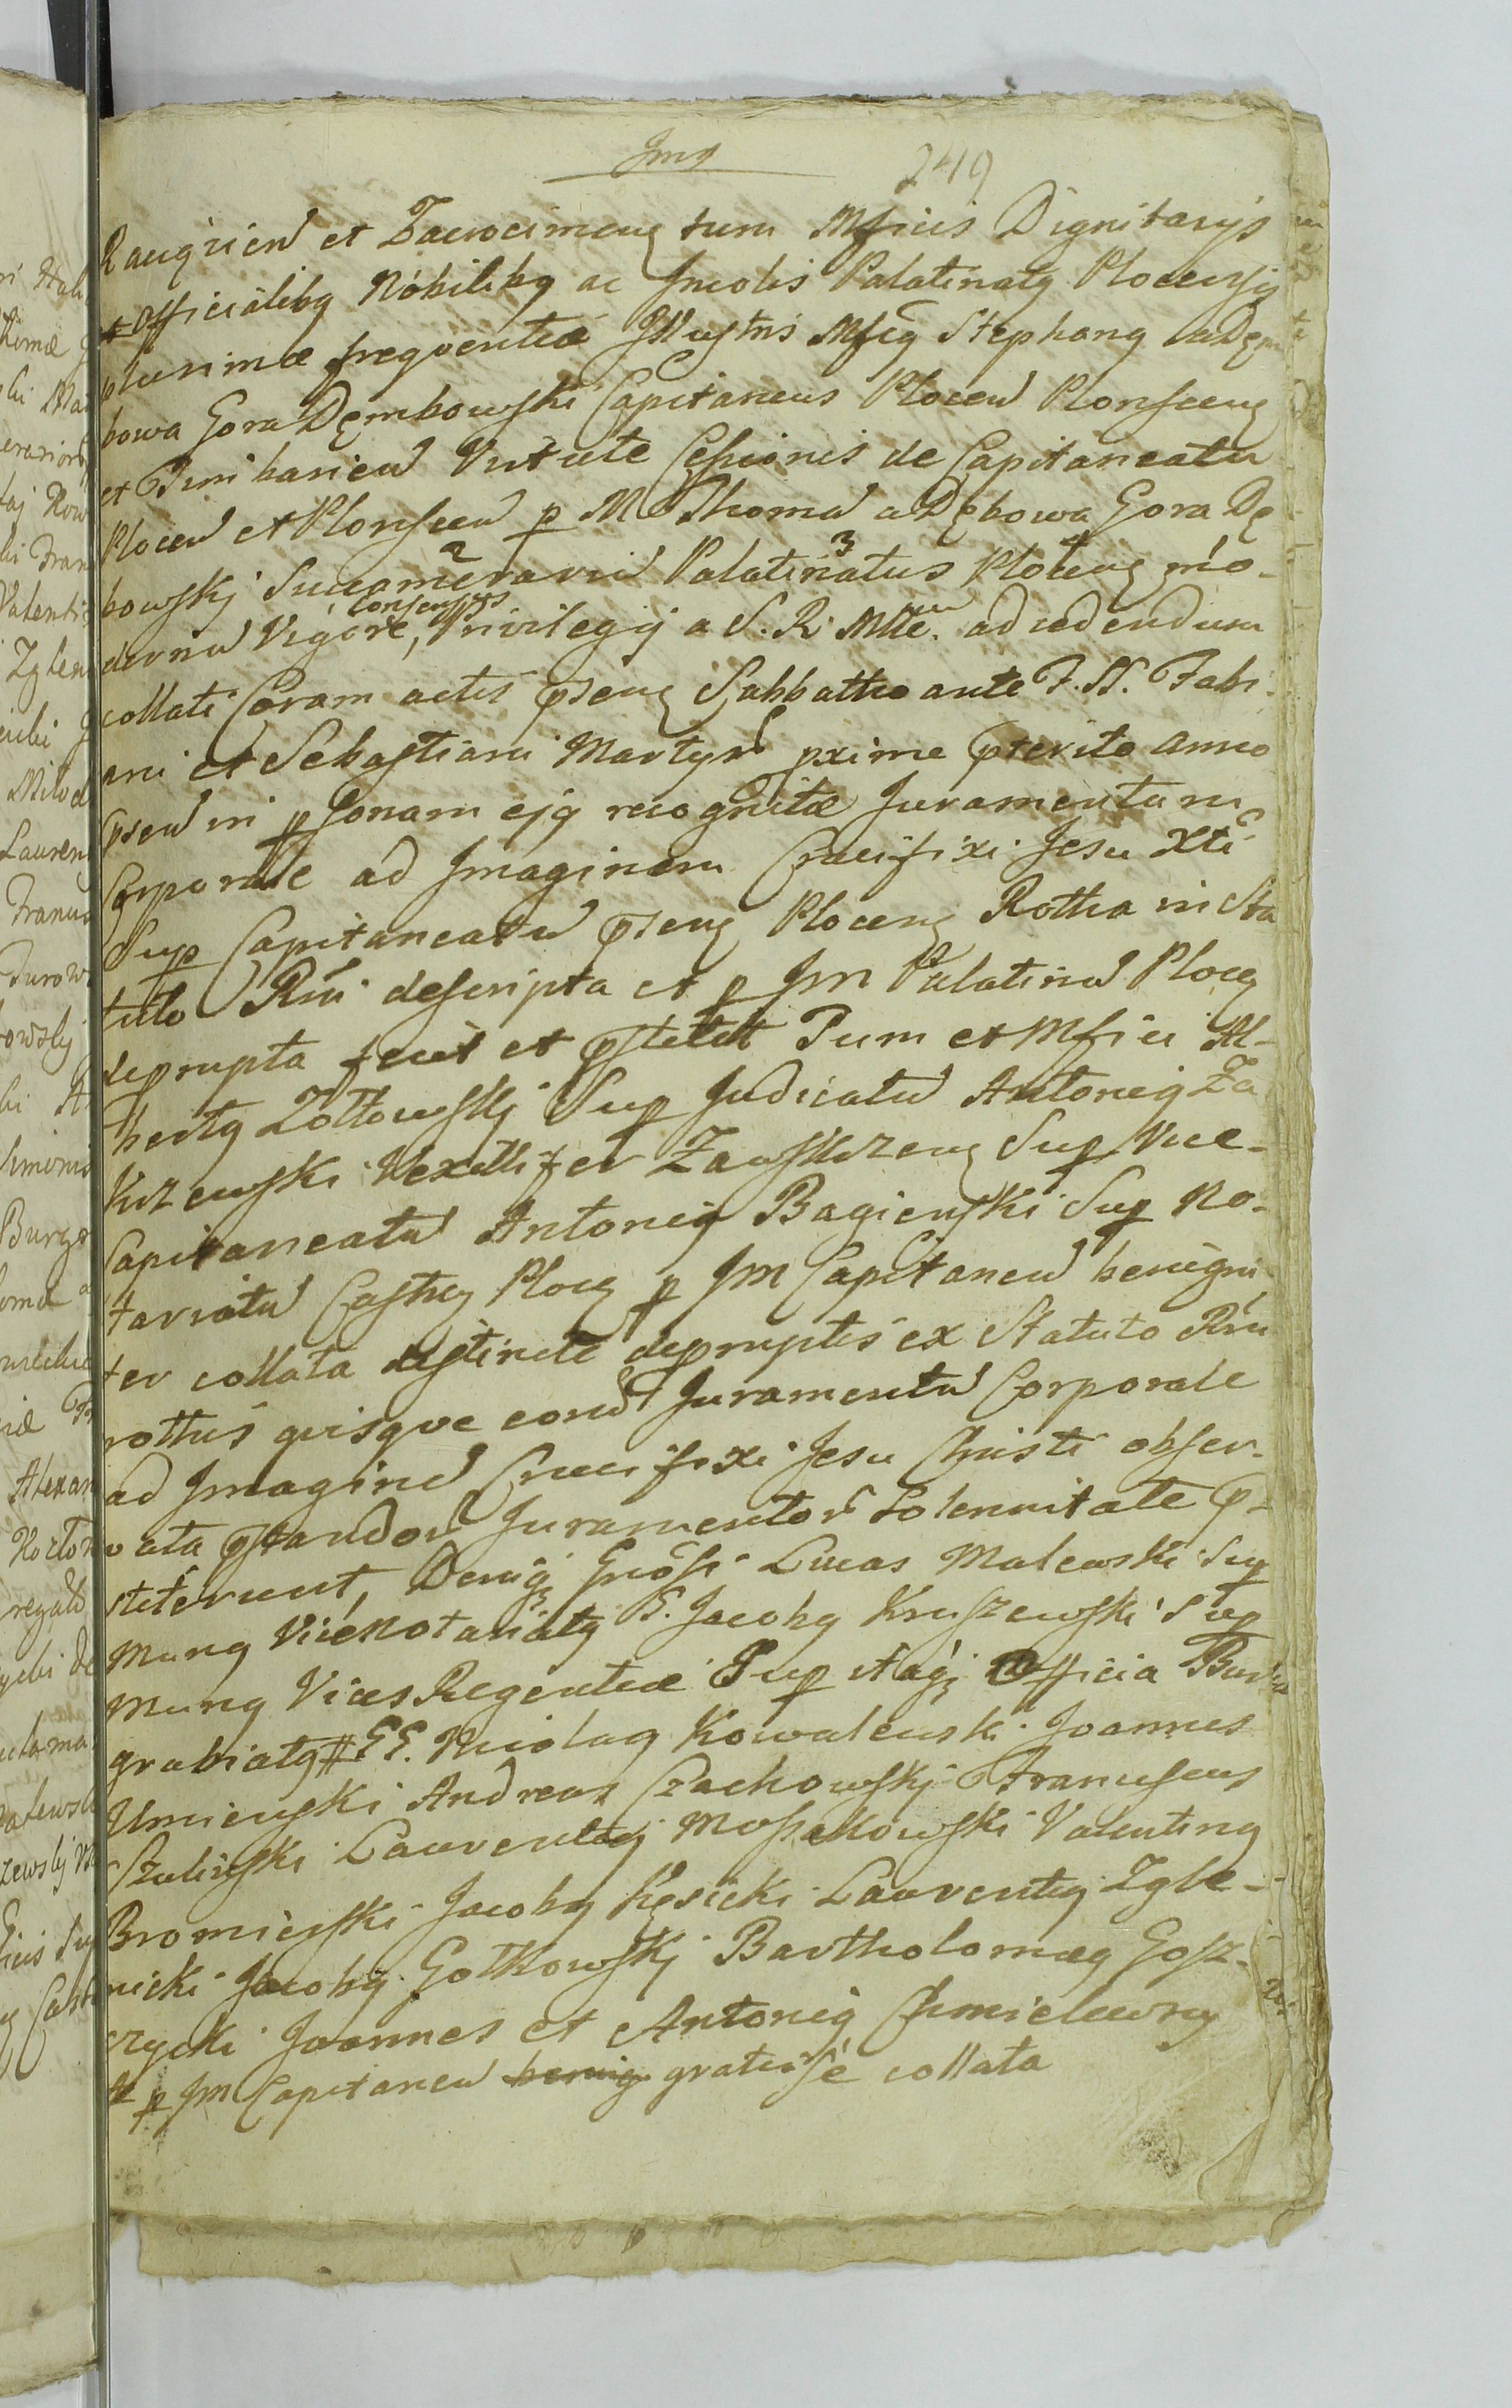 Jmg
249
et Zawocimeng tum Mficis Dignitarijs
et Officialibg Nobilibg ac Jncolis Palatinatg Plocensis
plurimæ freqventiæ Jllustris Mficg Stephang a Dęm
bowa Gora Dęmbowski Capitaneus Plocen Plonsceng
et Virtute Cessionis de Capitaneatu
Plocen et Plonscen p M Thoma a Dębowa Gora Dę
bowskj Succamerariu Palatinatus Ploceng mo-
2 3
dernu Vigore, Privilegij a S. R. Mtte. ad cedendum
consensus
collati Coram actis pseng Sabbatho ante F. SS. Fabi
ani et Sebastiani Martyru pxime pterito anno
psen in psonam ejg recognitæ Juramentum
Corporale ad Jmaginem Crucifixi Jesu Xti
Sup Capitaneatu pseng Ploceng Rotha in Sta
tuto Rni descripta et p Jm Palatinu Ploceg
deprompta fecit et pstitit Tum et Mfici Al-
bertg Zółtowskj Sup Judicatu Antonig Za
krzewski Vexillifer Zawskrzeng Sup Vice-
Capitaneatu Antonig Bagieński Sup No-
tariatu Castreg Ploceg p Jm Capitaneu benigni
ter collata distincte depromptis ex Statuto Rni
rothis qvisqve eoru Juramentu Corporale
ad Jmagine Crucifixi Jesu Christi obser-
vata pstandoru Juramentoru Solennitate p-
stiterunt, Deniq Gnosi Lucas Malewski Sup
Mung ViceNotariatg G. Jacobg Kruszewski Sup
Mung Vices Regentiæ Sup itaq Officia Bur
grabiatg # GG. Nicolag Kowalewski Joannes
Umieński Andreas Czachowskj Franciscus
Czuliński Laurentig Mossakowski Valenting
Bromierski Jacobg Kęsicki Laurentig Zgle-
nicki Jacobg Gotkowskj Bartholomæg Gosz-
czycki Joannes et Antonig Chmielewscy
# p Jm Capitaneu benig gratiose collata